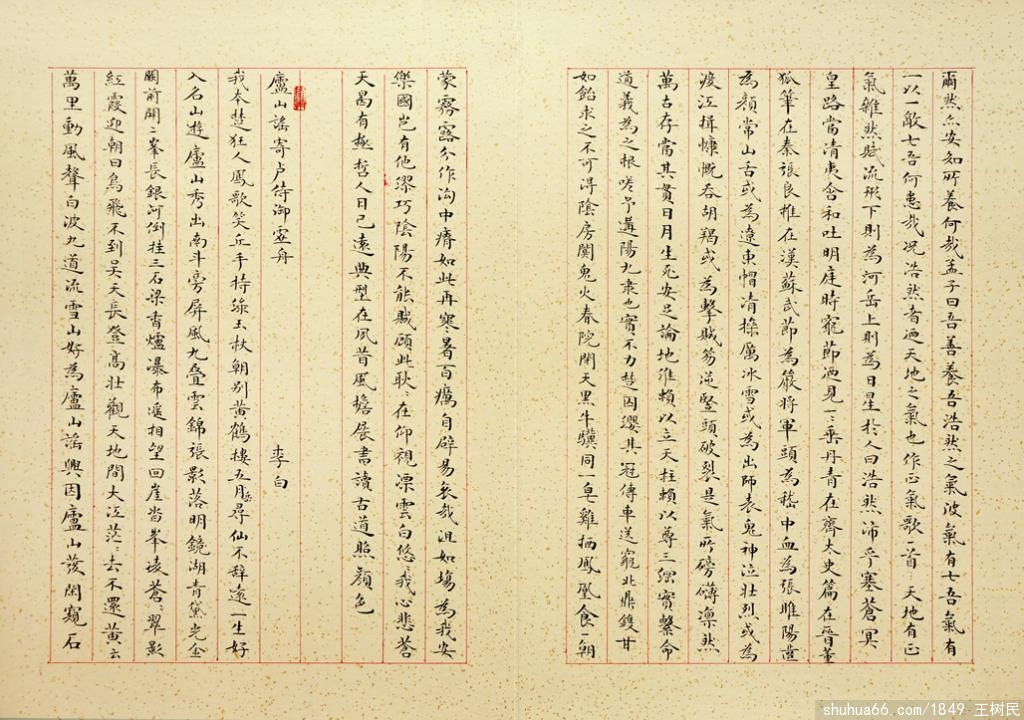 爾然亦安知所養何哉孟子曰吾善養吾浩然之氣波氣有七吾氣有
一以一敵七吾何患哉况浩然者迺天地之氣也作正氣歌一首 天地有正
氣雜然賦流形下則為河岳上則為日星於人曰浩然沛乎塞蒼冥
皇路當清夷含和吐明庭時窮節迺見一〻垂丹青在齊太史簡在晉董
狐筆在秦張良椎在漢蘇武節為嚴將軍頭為嵇中血為張睢陽齒
為顏常山舌或為遼東帽清操厲冰雪或為出師表鬼神泣壯烈或為
渡江楫慷慨吞胡羯或為擊賊笏逆豎頭破裂是氣所磅礴凜然
萬古存當其貫日月生死安足論地維賴以立天柱賴以尊三綱實繫命
道義為之根嗟予遘陽九隸也實不力楚囚纓其冠傳車送窮北鼎鑊甘
如飴求之不可得陰房闃鬼火春院閉天黑牛驥同一皂雞栖鳳凰食一朝
蒙霧露分作溝中瘠如此再寒暑百癘自辟易哀哉沮如場為我安
樂國豈有他繆巧陰陽不能賊顧此耿〻在仰視浮雲白悠〻我心悲蒼
天曷有極哲人日已遠典型在夙昔風簷展書讀古道照顏色
廬山謠寄卢侍御虛舟 李白
我本楚狂人鳳歌笑孔丘手持綠玉杖朝别黄鶴樓五岳尋仙不辞遠一生好
入名山遊廬山秀出南斗旁屏風九叠雲錦張影落明鏡湖青黛光金
闕前開二峯長銀河倒挂三石梁香爐瀑布遥相望回崖沓峯凌蒼〻翠影
紅霞迎朝日鳥飛不到吴天長登高壯觀天地間大江茫〻去不還黄云
萬里動風聲白波九道流雪山好為廬山謠興因廬山發閒窺石
shuhua66.com/1849 王树民